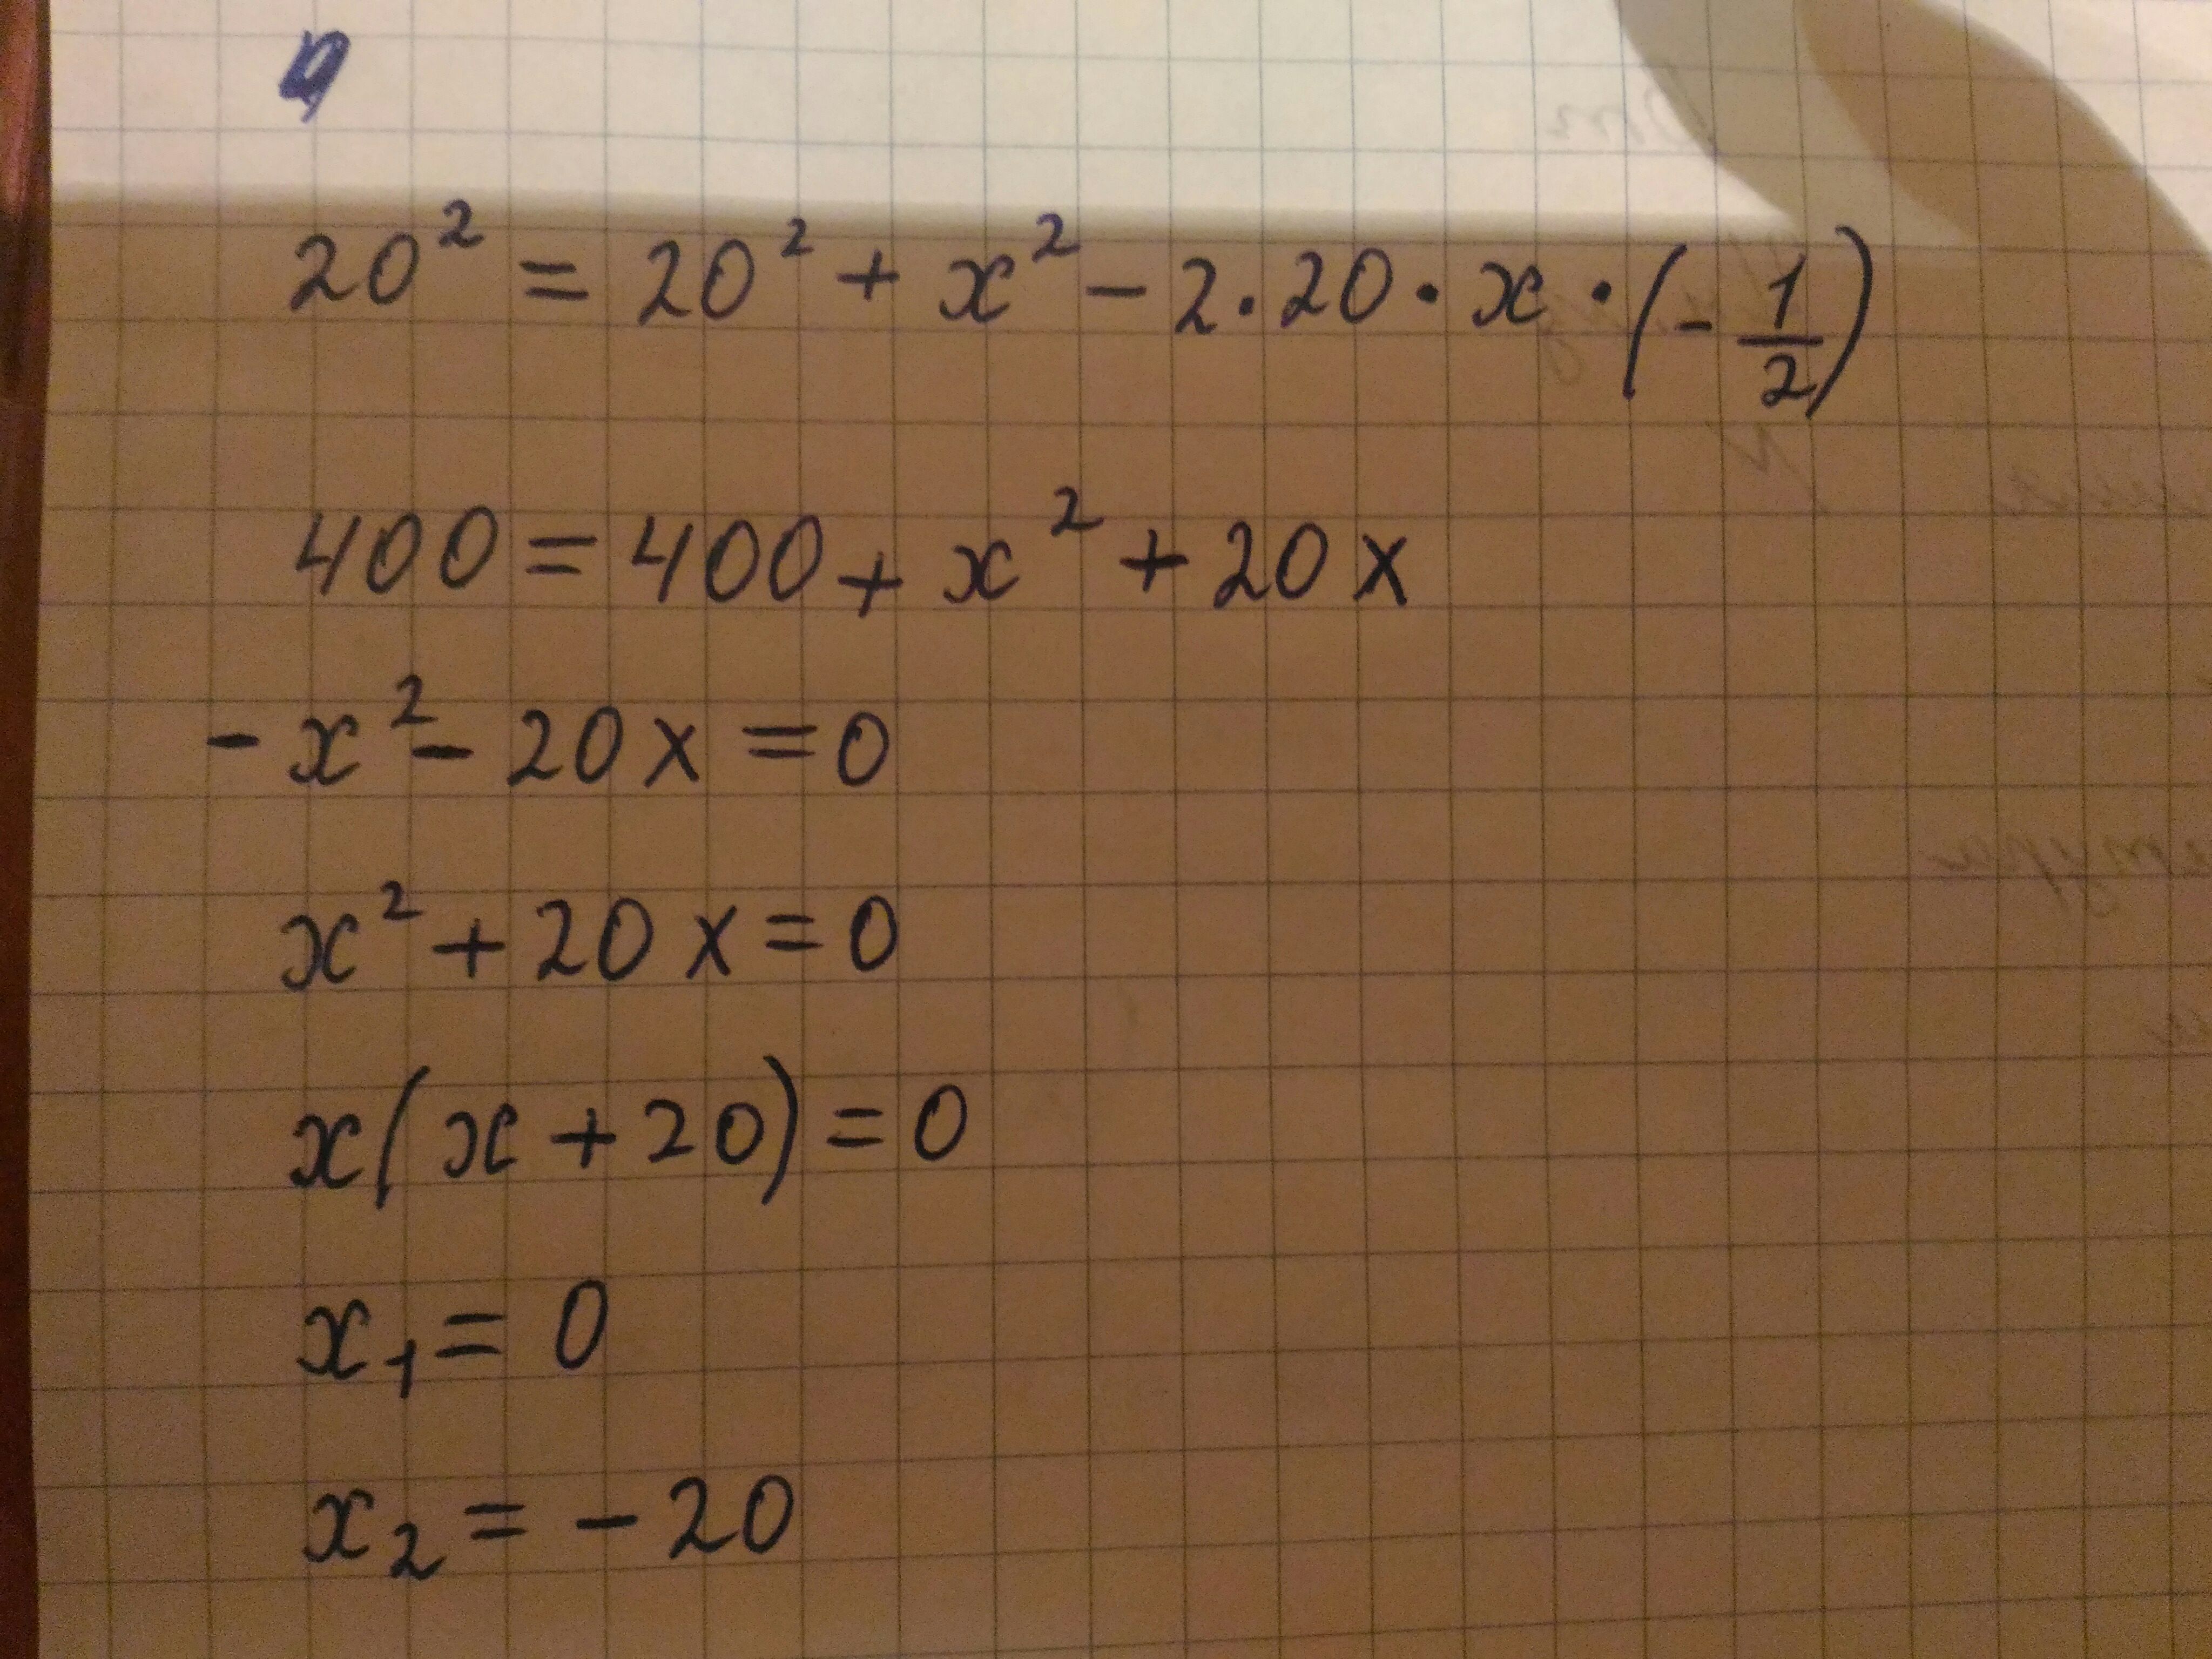 20² = 20² + x² - 2 · 20 · x · (- 1/2)
400 = 400 + x² + 20x
- x² - 20x = 0
x² + 20x = 0
x(x + 20) = 0
x₁ = 0
x₂ = - 20